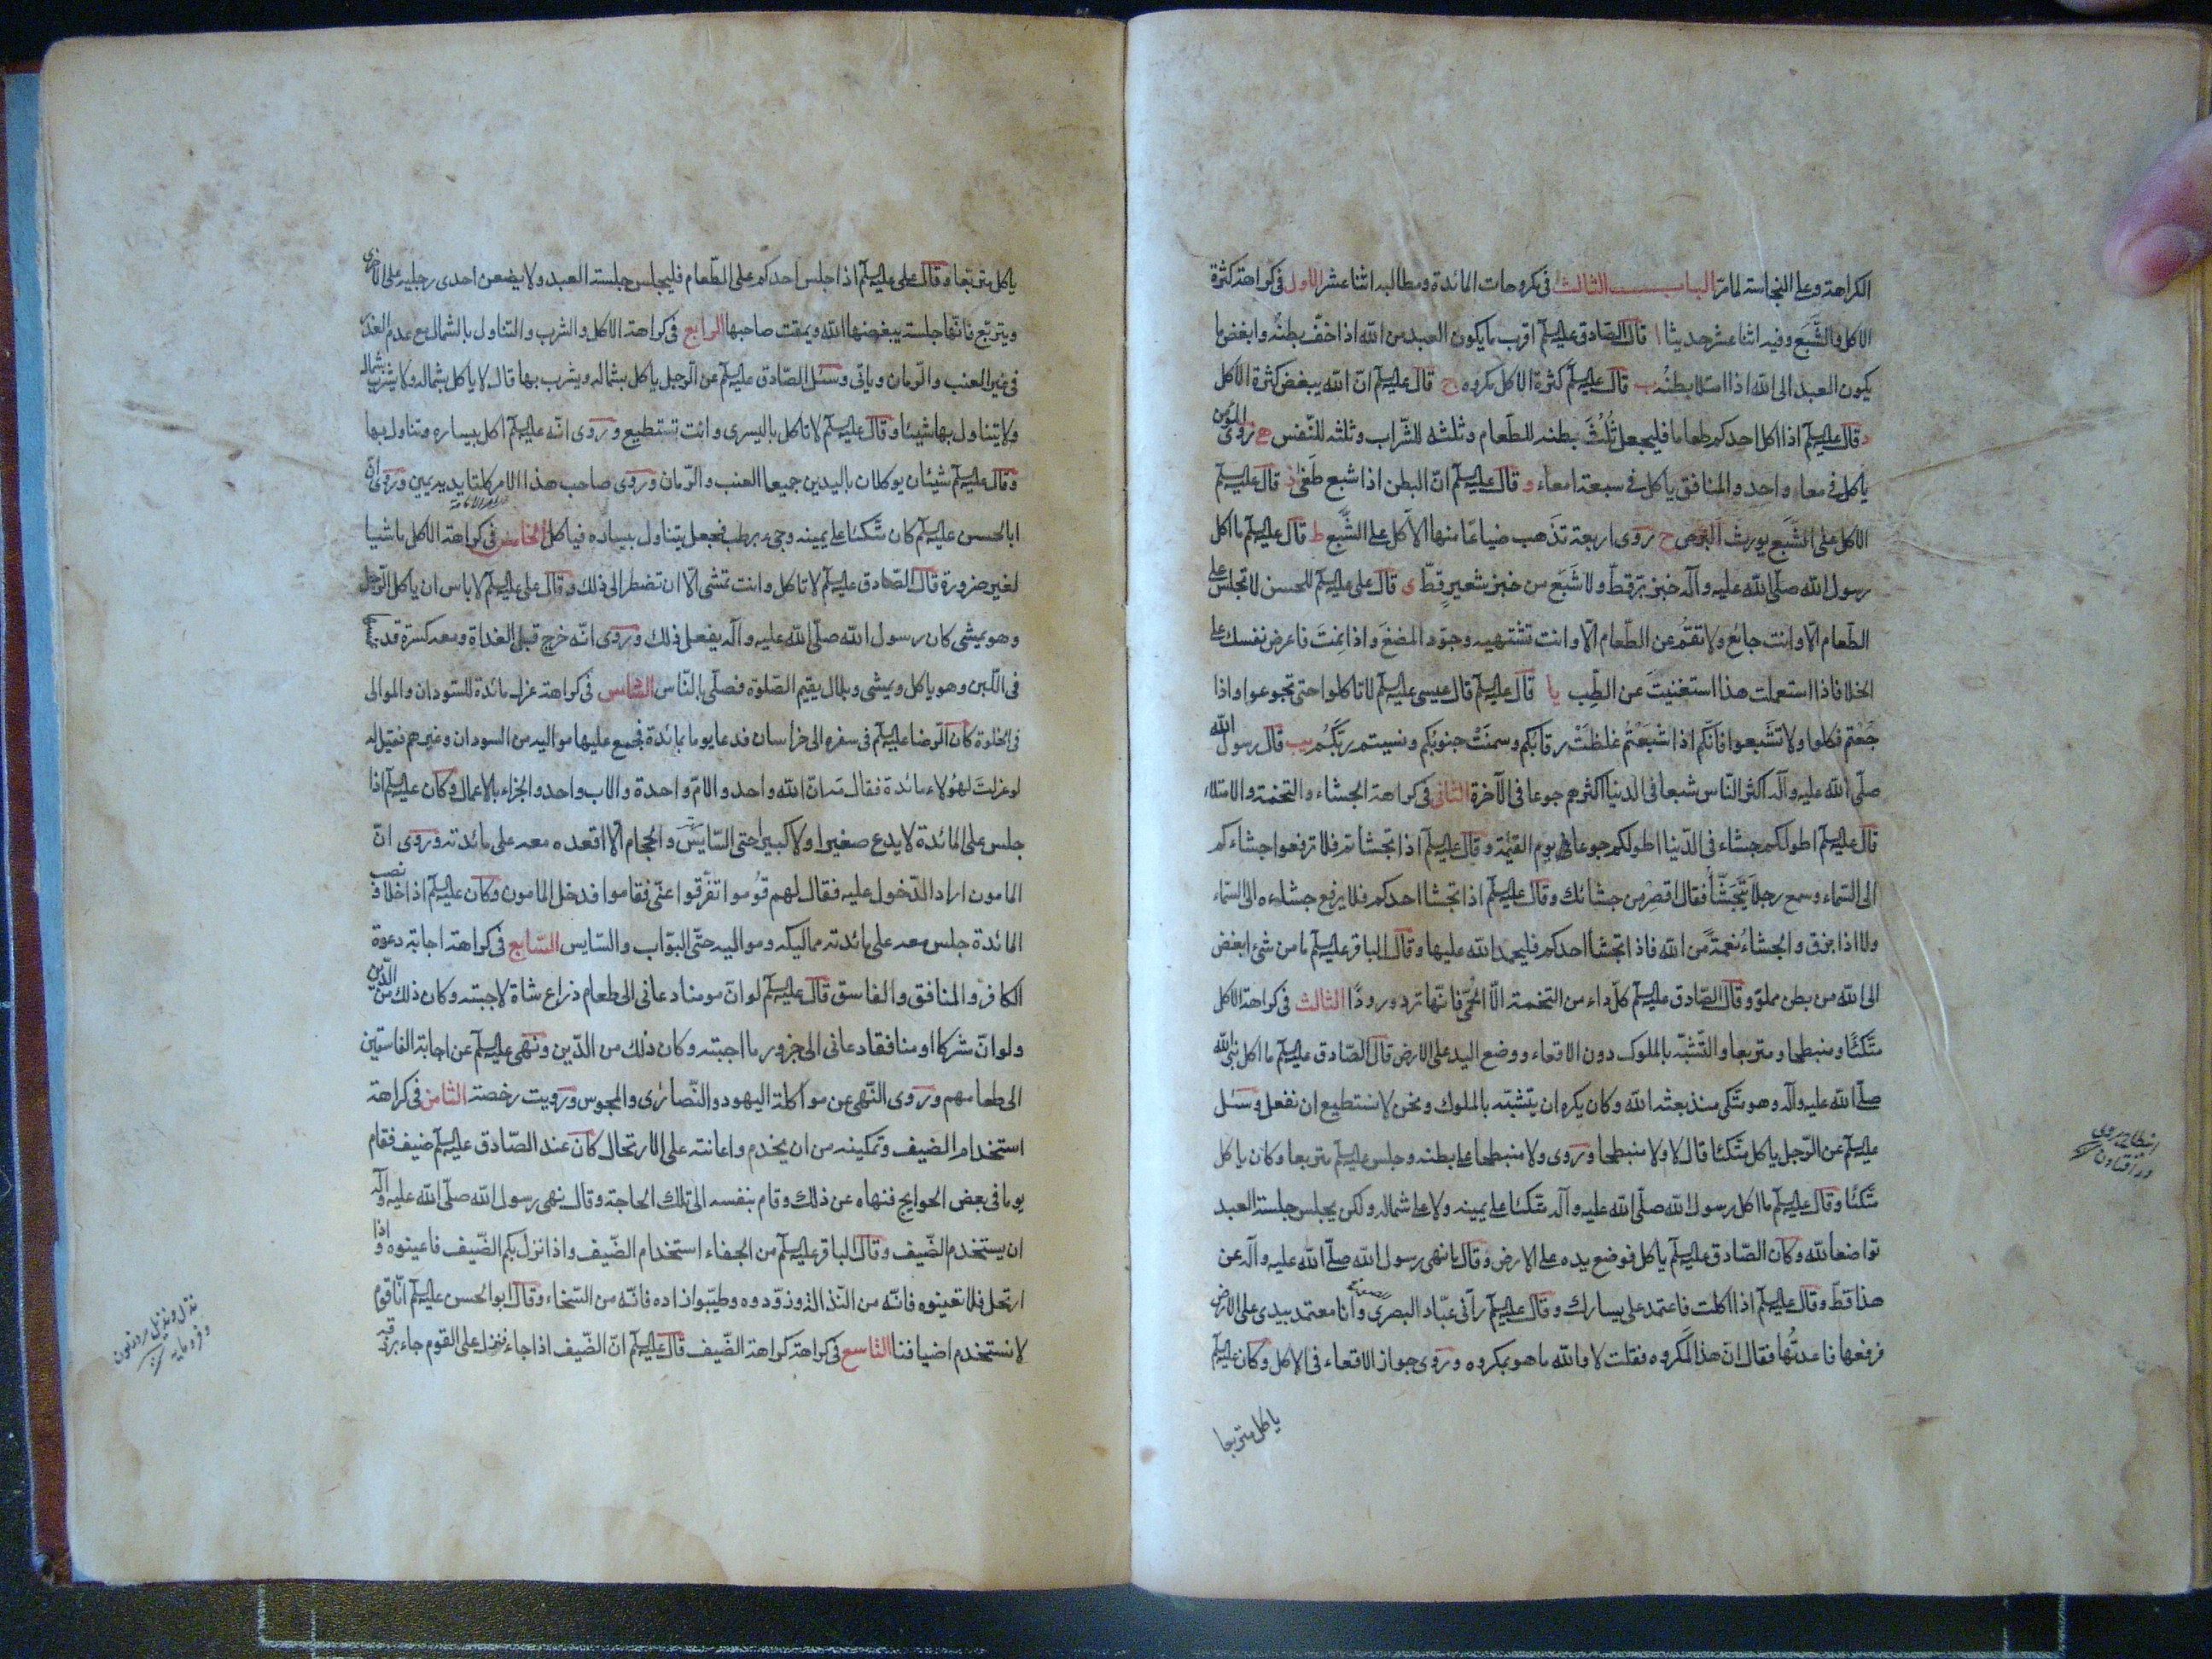 الكراهة وعلى النجاسة لما مر الباب الثالث في مكروهات المائدة ومطالبه اثنا عشر الاول في كراهة كثرة
الاكل والشَّبَع وفيه اثنا عشر حديثا ا قال الصّادق عليه السلم اقرب ما يكون العبد من الله اذا اخفّ بطنُه وابغض ما
يكون العبد الى الله اذا امتلا بطنُه ب قال عليه السلم كثرة الاكل مكروه ج قال عليه السلم انّ الله يبغض كثرة الاكل
د قال عليه السلم اذا اكل احدكم طعاما فليجعل ثُلُثَ بطنه للطّعام وثلثه للشّراب وثلثه للنّفس ه روى المؤمن
ياكل في معاء واحد والمنافق ياكل في سبعة امعاء و قال عليه السلم انّ البطن اذا شبع طَغٰى ز قال عليه السلم
الاكل على الشّبَع يورث البَرَص ح روى اربعة تذهب ضياعًا منها الاَكل على الشَّبع ط قال عليه السلم ما اكل
رسول الله صلّى الله عليه وآله خبز برّ قطّ ولا شَبَع من خبز شعيرٍ قطّ ى قال على عليه السلم للحسن لا تجلس على
الطّعام الّا وانت جائع ولا تقم عن الطّعام الّا وانت تشتهيه وجوّد المضغَ واذا نمتَ فاعرض نفسك على
الخلا فاذا استعملت هذا استغنيتَ عن الطِّب يا قال عليه السلم قال عيسى عليه السلم لا تاكلوا حتى تجوعوا واذا
جُعْتم فكلوا ولا تَشبعوا فانّكم اذا شبعْتُم غلظَتْ رقابكم وسمنَتْ جنوبُكم ونسيتم ربَّكُم يب قال رسول الله
صلّى الله عليه وآله اكثر النّاس شبعا في الدنيا اكثرهم جوعا في الآخرة الثانى في كراهة الجشاء والتخمة والامتلاء
قال عليه السلم اطولكم جشاء في الدّنيا اطولكم جوعا في يوم القيٰمة وقال عليه السلم اذا تجشاتم فلا ترفعوا جشاءكم
الى السّماء وسمع رجلا يَتَجَشّأ فقال اقصِر من جشائك وقال عليه السلم اذا تجشا احدكم فلا يرفع جشاءه الى السّماء
ولا اذا بزق والجشاءُ نعمةٌ من الله فاذا تجشأ احدكم فليحمد الله عليها وقال الباقر عليه السلم ما من شئ ابغض
الى الله من بطن مملوّ وقال الصّادق عليه السلم كلّ داء من التخمة الّا الحمّى فانّها ترد ورودًا الثالث في كراهة الاكل
متّكئًا ومنبطحا ومتربعا والتّشبّه بالملوك دون الاقعاء ووضع اليد على الارض قال الصّادق عليه السلم ما اكل نبى الله
صلّى الله عليه وآله وهو متّكى منذ بعثه الله وكان يكره ان يتشبّه بالملوك ونحن لا نستطيع ان نفعل وسئل
عليه السلم عن الرّجل ياكل متّكئا قال لا ولا منبطحا وروى ولا منبطحا على بطنه وجلس عليه السلم متربعا وكان ياكل
متّكئًا وقال عليه السلم ما اكل رسول الله صلّى الله عليه وآله متّكئا على يمينه ولا على شماله ولكن يجلس جلسة العبد
تواضعا لله وكان الصّادق عليه السلم ياكل فوضع يده على الارض وقال ما نهى رسول الله صلّى الله عليه وآله عن
هذا قطّ وقال عليه السلم اذا اكلت فاعتمد على يسارك وقال عليه السلم رآنى عبّاد البصرى وانا معتمد بيدى على الارض
فرفعها فاعدتُّها فقال انّ هذا لمكروه فقلت لا والله ما هو بمكروه وروى جواز الاقعاء في الاكل وكان عليه السلم
ياكل متربعا
انبطاح بروى
در افتادن
ياكل متربّعا وقال على عليه السلم اذا جلس احدكم على الطّعام فليجلس جلسة العبد ولا يضعن احدى رجليه على الاخرى
ويتربّع فانّها جلسة يبغضها الله ويمقت صاحبها الرابع في كراهة الاكل والشرب والتناول بالشمال مع عدم العذر
في غير العنب والرّمان وياتى وسئل الصّادق عليه السلم عن الرّجل ياكل بشماله ويشرب بها قال لا ياكل بشماله ولا يشرب بشماله
ولا يتناول بها شيئا وقال عليه السلم لا تاكل باليسرى وانت تستطيع وروى انّه عليه السلم اكل بيساره وتناول بها
وقال عليه السلم شيئان يوكلان باليدين جميعا العنب والرّمان وروى صاحب هذا الامر كلتا يديه يمين وروى انّ
ابا الحسن عليه السلم كان متّكئا على يمينه وجىء برطب فجعل يتناول بيساره فياكل الخامس في كراهة الاكل ماشيا
لغير ضرورة قال الصّادق عليه السلم لا تاكل وانت تمشى الّا ان تضطر الى ذلك وقال على عليه السلم لا باس ان ياكل الرّجل
وهو يمشى كان رسول الله صلّى الله عليه وآله يفعل ذلك وروى انّه خرج قبل الغداة ومعه كسرة قد غمسها
في اللّبن وهو ياكل ويمشى وبلال يقيم الصّلوة فصلّى بالنّاس السّادس في كراهة عزل مائدة للسّودان والموالى
في الخلوة كان الرّضا عليه السلم في سفره الى خراسان فدعا يوما بمائدة فجمع عليها مواليه من السودان وغيرهم فقيل له
لو عزلتَ لهؤلاء مائدة فقال مه انّ الله واحد والامّ واحدة والاب واحد والجزاء بالاعمال وكان عليه السلم اذا
جلس على المائدة لا يدع صغيرا ولا كبيرا حتى السّايس والحجام الّا اقعده معه على مائدته وروى انّ
المامون اراد الدّخول عليه فقال لهم قُوموا تفَرّقوا عنّى فقاموا فدخل المامون وكان عليه السلم اذا خلا ونصب
المائدة جلس معه على مائدته مماليكه ومواليه حتّى البوّاب والسّايس السّابع في كراهة اجابة دعوة
الكافر والمنافق والفاسق قال عليه السلم لو انّ مومنا دعانى الى طعام ذراع شاة لاجبته وكان ذلك من الدّين
ولو انّ مشركا او منافقا دعانى الى جزور ما اجبته وكان ذلك من الدّين ونهى عليه السلم عن اجابة الفاسقين
الى طعامهم وروى النّهى عن مواكلة اليهود والنّصارٰى والمجوس ورويت رخصة الثامن في كراهة
استخدام الضيف وتمكينه من ان يخدم واعانته على الارتحال كان عند الصّادق عليه السلم ضيف فقام
يوما في بعض الحوايج فنهاه عن ذلك وقام بنفسه الى تلك الحاجة وقال نهى رسول الله صلّى الله عليه وآله
ان يستخدم الضّيف وقال الباقر عليه السلم من الجفاء استخدام الضّيف واذا نزل بكم الضّيف فاعينوه واذا
ارتحل فلا تعينوه فانّه من النّذالة وزوّدوه وطيّبوا زاده فانّه من السّخاء وقال ابو الحسن عليه السلم انّا قوم
لا نستخدم اضيافنا التاسع في كراهة كراهة الضّيف قال عليه السلم انّ الضّيف اذا جاء فنزل على القوم جاء برزقه
نذل ونذيل مرد زبون
وفرومايه